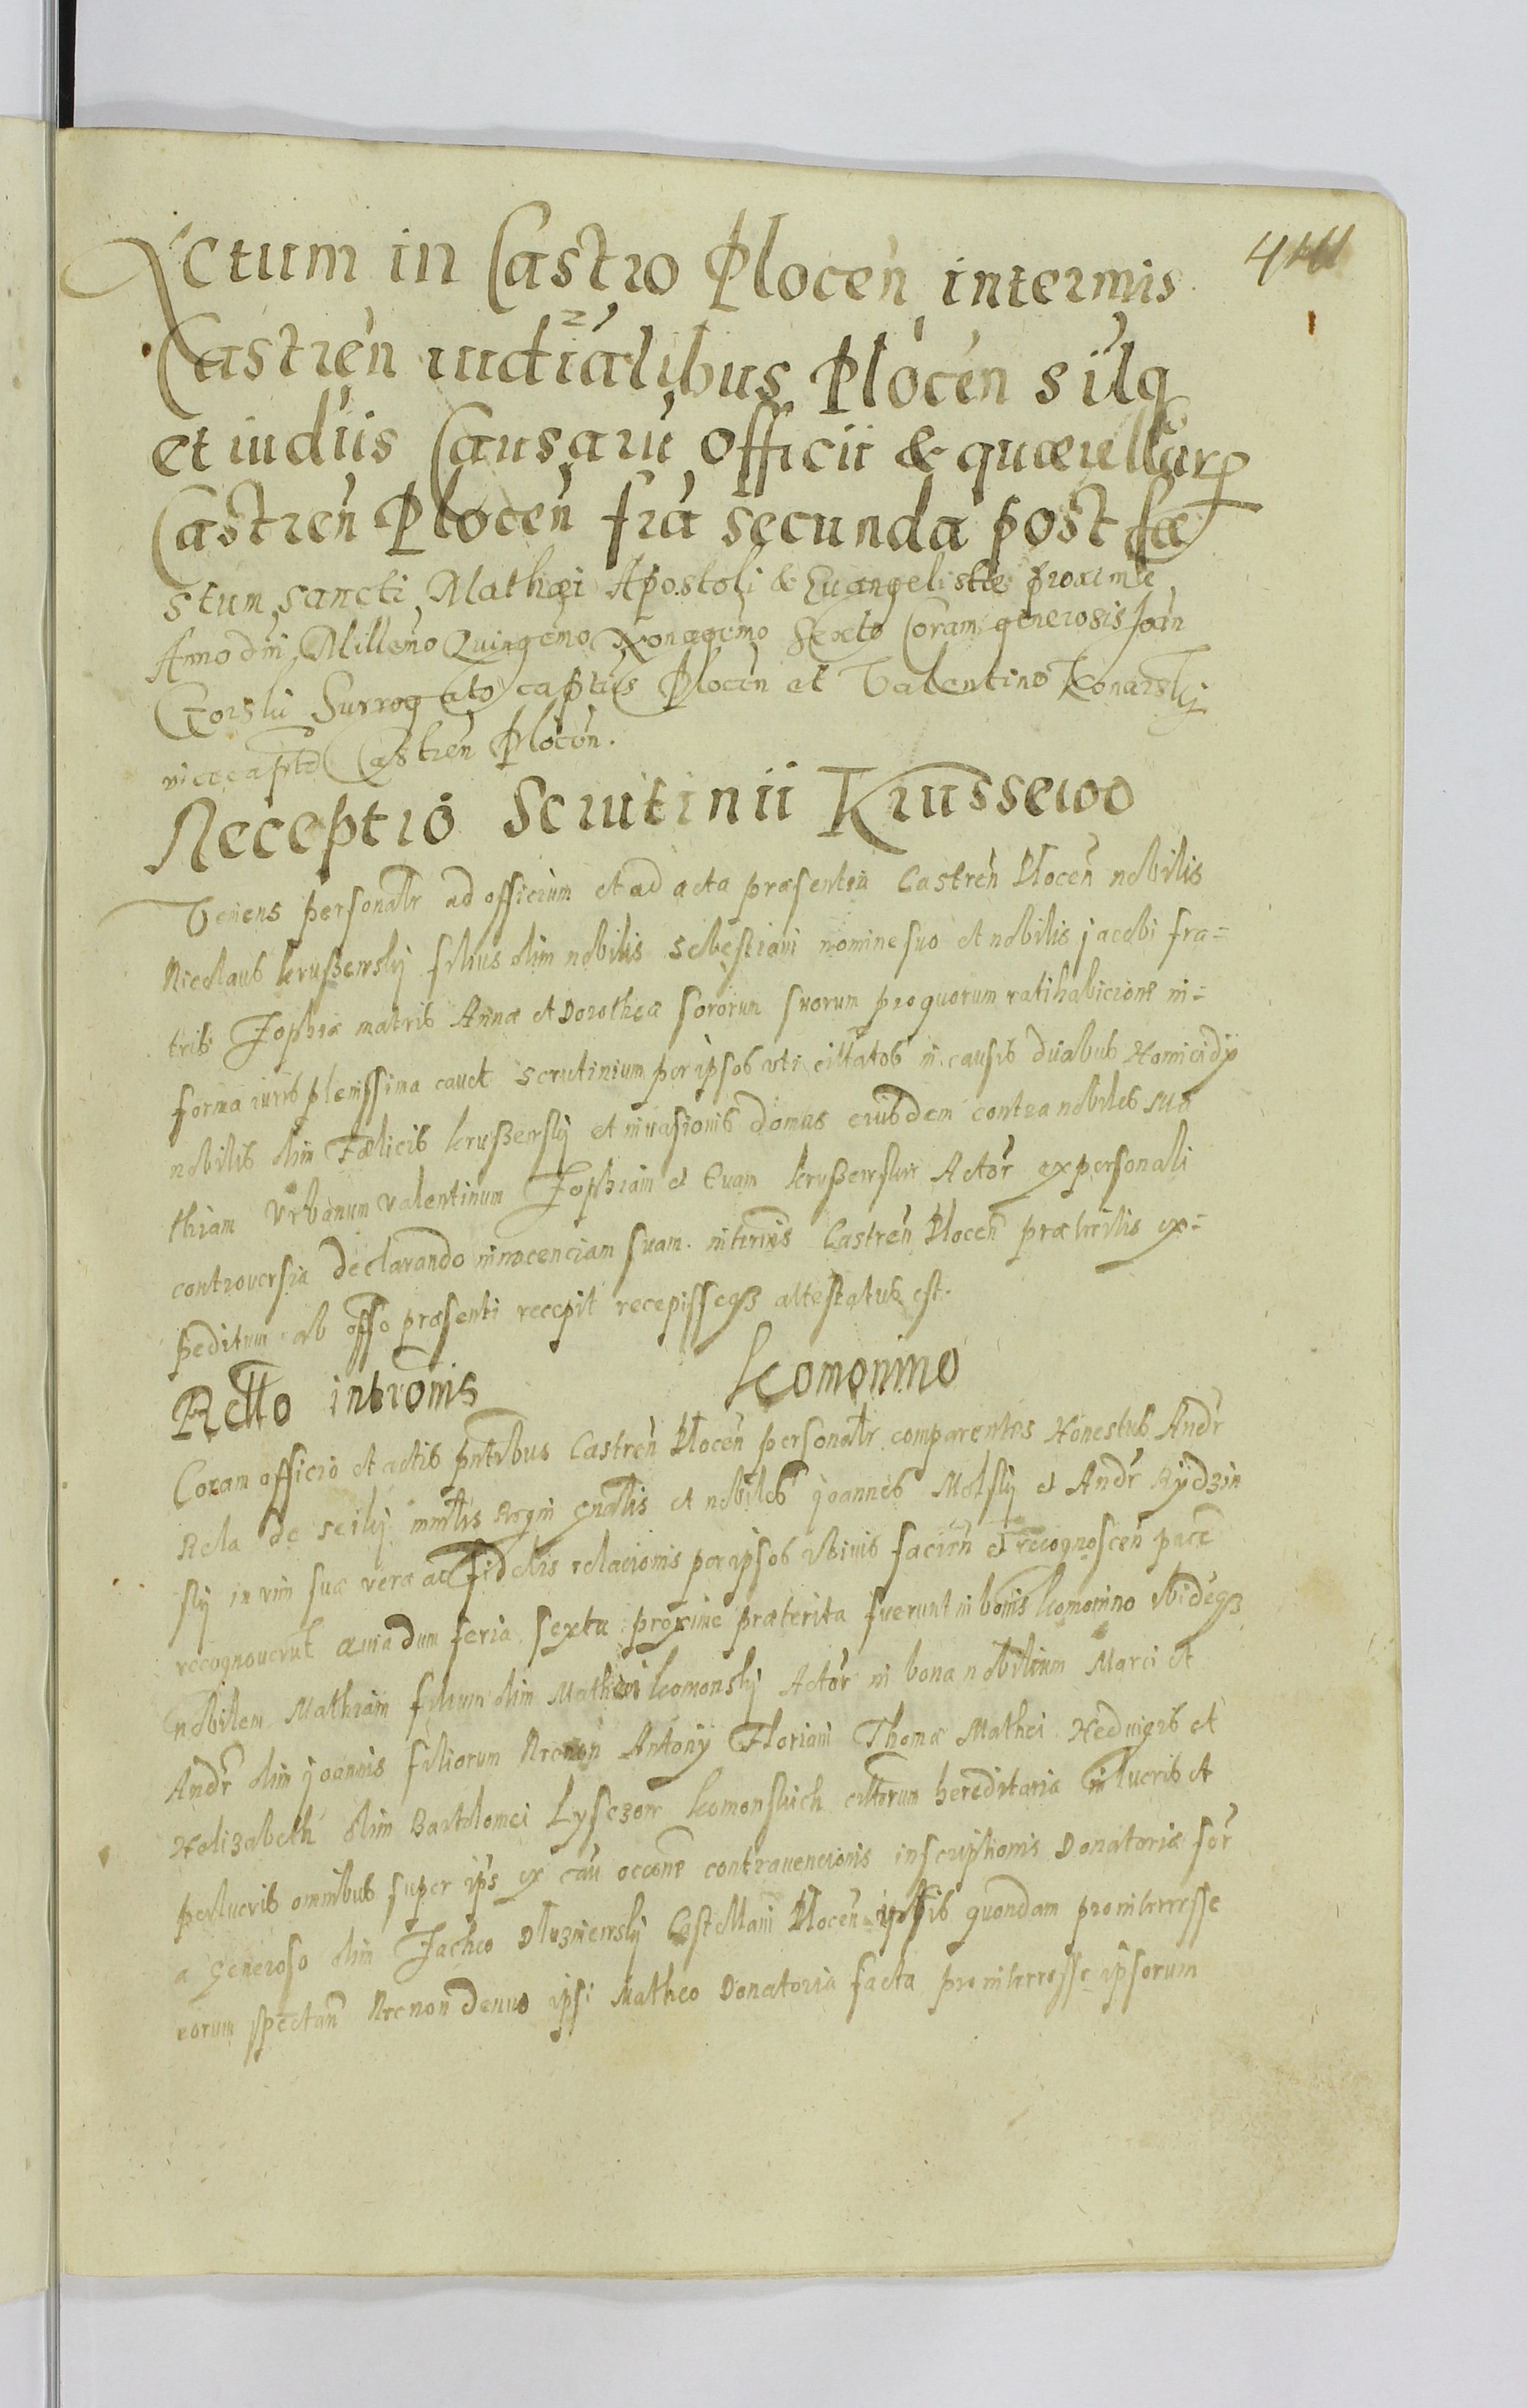 Actum in Castro Plocen intermis
Castren iudicialibus Plocen silq
et iudiis Causaru Officii & quærellaru
Castren Plocen fria secunda post fæ
stum sancti Mathæi Apostoli & Euangelistæ proxime
Anno dni Millemo Quingemo Nonagemo Sexto Coram generosis Joan
Gorski Surrogato captus Plocen et Valentino Konarskij
vicecapto Castren Plocen.
Receptio Scrutinii Krussewo
Veniens personalr ad officium et ad acta præsentia Castren Plocen nobilis
Nicolaus krußewskij filius olim nobilis Sebestiani nomine suo et nobilis jacobi fra=
tris Zophiæ matris Annæ et Dorotheæ sororum suorum pro quorum ratihabicione in=
forma iuris plenissima cauet scrutinium per ipsos uti citatos in causis duabus Homicidy
nobilis olim Fælicis krußewskij et inuasionis domus eiusdem contra nobiles Ma
thiam Vrbanum Valentinum Zophiam et Euam krußewskie Actor ex personali
controuersia declarando innocenciam suam intermis Castren Plocen præteritis ex=
peditum ab offo præsenti recepit recepisseqß attestatus est.
Rello intromis komonino
Coram officio et actis pntibus Castren Plocen personalr comparentes Honestus Andr
Rela de scilij mnlis Regni gnalis et nobiles joannes Molskij et Andr Rydzin
skij in vim suæ veræ ac fidelis relacionis per ipsos ibiuis facien et recognoscen pnte
recognouerut quia dum feria sexta proxime præterita fuerunt in bonis komonino ibideqß
nobilem Mathiam filium olim Mathei komonskij Actor in bona nobilium Marci et
Andr olim joannis filiorum Necnon Antony Floriani Thomæ Mathei Heduigis et
Helizabeth olim Bartolomei Lysczow komonskich cittorum hereditaria in lucris et
perlucris omnibus super ips ex cau occone contrauencionis inscriptionis Donatoriæ for
a Generoso olim Jacheo Dluzniewskij Castellani Plocen ipsis quondam pro interesse
eorum spectan Necnon denuo ipsi Matheo Donatoria facta pro interesse ipsorum